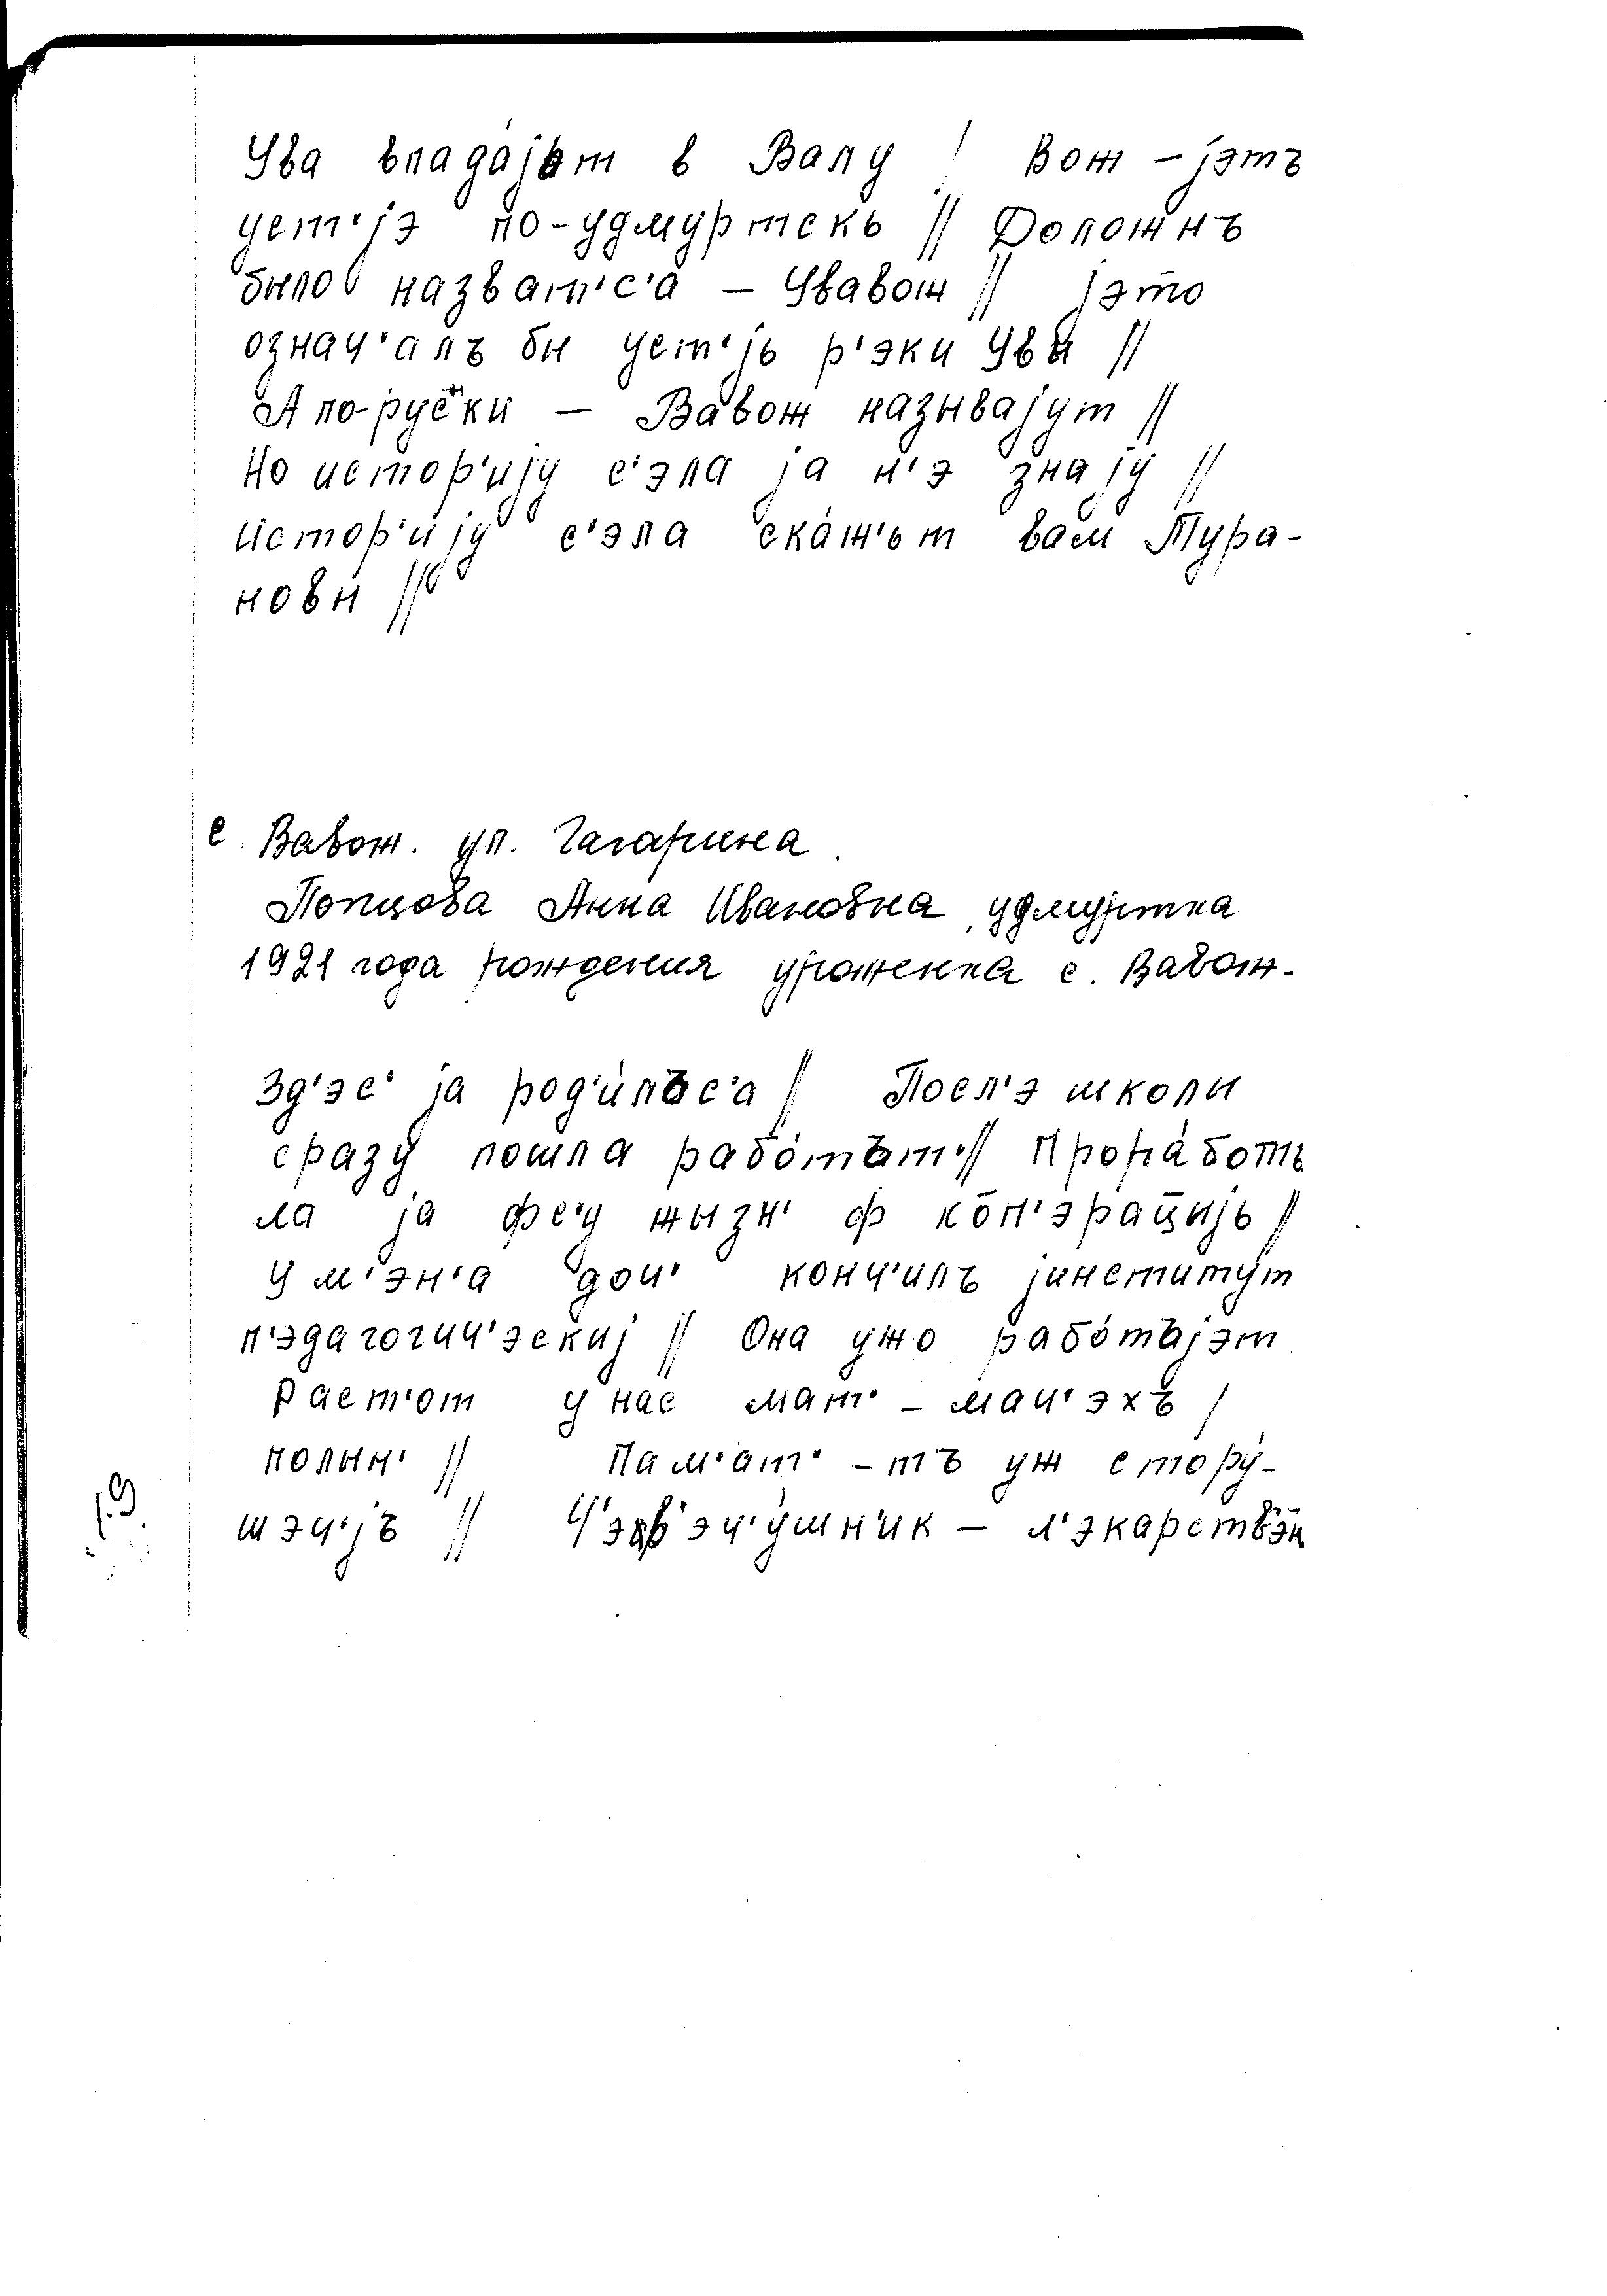 Ува впада́јьт в Валу / Вож – јэтъ
уст'јэ по-удмуртскь // Доложнъ
было назват'с'а – Увавож // јэто
означ'алъ бы уст'јь р'эки Увы //
А по-руск'и – Вавож называјут //
Но истор'ију с'эла ја н'э знају //
Истор'ију с'эла ска́ж'ьт вам Тура-
новы //
с. Вавож. ул. Гагарина.
Попцова Анна Ивановна, удмуртка
1921 года рождения уроженка с. Вавож.
Зд'эс' ја род'и́лъс'а // Посл'э школы
сразу пошла рабо́тът' // Прора́боть
ла ја фс'у жызн' ф ко̄п'эрац̄ыјь //
У м'эн'а доч' конч'илъ јинститу́т
п'эдагогич'эскиј // Она ужо рабо́тъјэт
Раст'от у нас мат' – мач'эхъ /
полын' // Пам'ат' – тъ уж стору́-
шэч'јъ // Ч'эрв'эч'у́шн'ик – л'экарств'эн
19